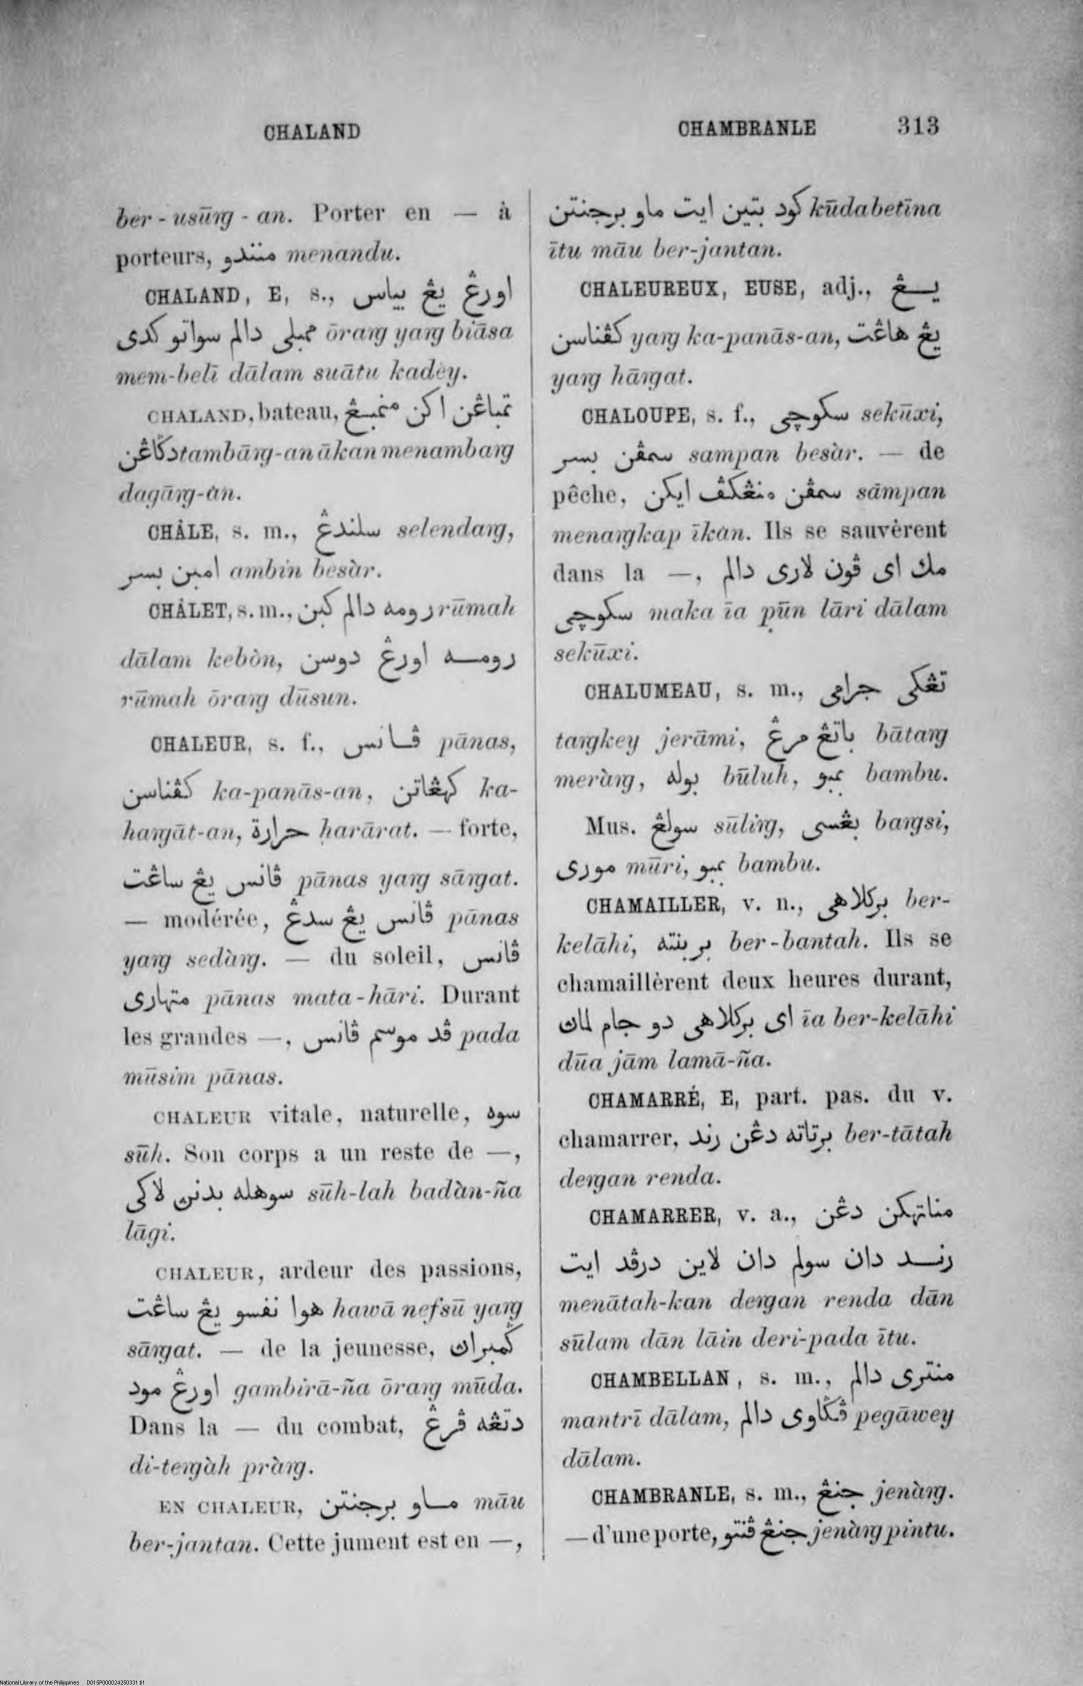 CHALAND
CHAMBRANLE 313
ber - usūrg - an. Porter en — à
porteurs, مننندو menandu.
CHALAND, E, s., اورڠ يڠ بياس
ممبلى دالم سواتو كدى ōrarg yarg biāsa
mem-belī dālam suātu kadèy.
CHALAND, bateau, تمباڠن اكن منمبڠ
دݢاڠن tambārg-an ākan menambarg
dagārg-an.
CHÂLE, s. m., سلندڠ selendarg,
امبن بسر ambin besàr.
CHÂLET, s. m., رومه دالم كبن rūmah
dālam kebòn, رومه اورڠ دوسن
rūmah ōrarg dūsun.
CHALEUR, s. f., ڤانس pānas,
كڤناسن ka-panās-an, كهڠاتن ka-
hargāt-an, حرارة ḥarārat. — forte,
ڤانس يڠ ساڠت pānas yarg sārgat.
— modérée, ڤانس يڠ سدڠ pānas
yarg sedàrg. — du soleil, ڤانس
متهارى pānas mata-hāri. Durant
les grandes —, ڤد موسم ڤانس pada
mūsim pānas.
CHALEUR vitale, naturelle, سوه
sūh. Son corps a un reste de —,
سوهله بدنڽ لاكى sūh-lah badàn-ña
lāgi.
CHALEUR, ardeur des passions,
هوا نفسو يڠ ساڠت hawā nefsū yarg
sārgat. — de la jeunesse, ݢمبراڽ
اورڠ مود gambirā-ña ōrarg mūda.
Dans la — du combat, دتڠه ڤرڠ
di-tergàh pràrg.
EN CHALEUR, ماو برجنتن māu
ber-jantan. Cette jument est en —,
كود بتين ايت ماو برجنتن kūda betīna
ītu māu ber-jantan.
CHALEUREUX, EUSE, adj., يڠ
كڤناسن yarg ka-panās-an, يڠ هاڠت
yarg hārgat.
CHALOUPE, s. f., سكوچى sekūxi,
سمڤن بسر sampan besàr. — de
pêche, سمڤن منڠكڤ ايكن sāmpan
menargkap īkan. Ils se sauvèrent
dans la —, مك اى ڤون لارى دالم
سكوچى maka īa pūn lāri dālam
sekūxi.
CHALUMEAU, s. m., تڠكى جرامى
targkey jerāmi, باتڠ مرڠ bātarg
meràrg, بوله būluh, بمبو bambu.
Mus. سولڠ sūlirg, بڠسى bargsi,
مورى mūri, بمبو bambu.
CHAMAILLER, v. n., بركلاهى ber-
kelāhi, بربنته ber-bantah. Ils se
chamaillèrent deux heures durant,
اى بركلاهى دو جام لماڽ īa ber-kelāhi
dūa jām lamā-ña.
CHAMARRÉ, E, part. pas. du v.
chamarrer, برتاته دڠن رند ber-tātah
dergan renda.
CHAMARRER, v. a., مناتهكن دڠن
رند دان سولم دان لاين درڤد ايت
menātah-kan dergan renda dān
sūlam dān lāin deri-pada ītu.
CHAMBELLAN, s. m., منترى دالم
mantrī dālam, ڤݢاوى دالم pegāwey
dālam.
CHAMBRANLE, s. m., جنڠ jenàrg.
— d'une porte, جنڠ ڤنتو jenàrg pintu.
National Library of the Philippines